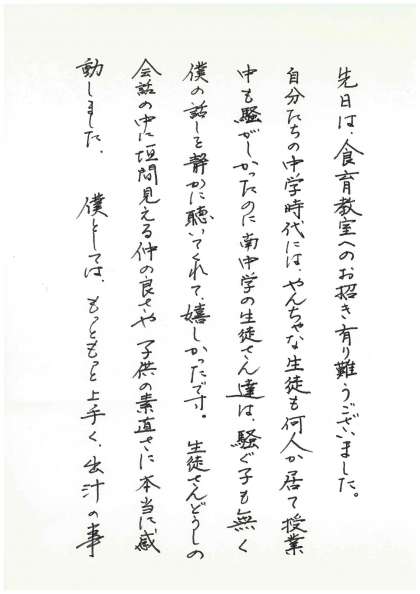 先日は、食育教室へのお招き有り難うございました。
自分たちの中学時代には、やんちゃな生徒も何人か居て授業
中も騒がしかったのに南中学の生徒さん達は、騒ぐ子も無く
僕の話しを静かに聴いてくれて、嬉しかったです。 生徒さんどうしの
会話の中に垣間見える仲の良さや子供の素直さに本当に、感
動しました。 僕としては、もっともっと上手く、出汁の事